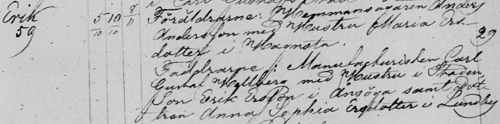 Erik 5/10 8/11 Föräldrarne: Hemmansägaren Anders
59 Andersson med Hustru Maria Ers-
dotter i 29
Faddrarne: Manufakturisten Carl
Gustaf Hyllberg med Hustru i Staden
son Erik Ersson i Ansöga samt Dot-
tren Anna Sophia Ersdotter i Lundby